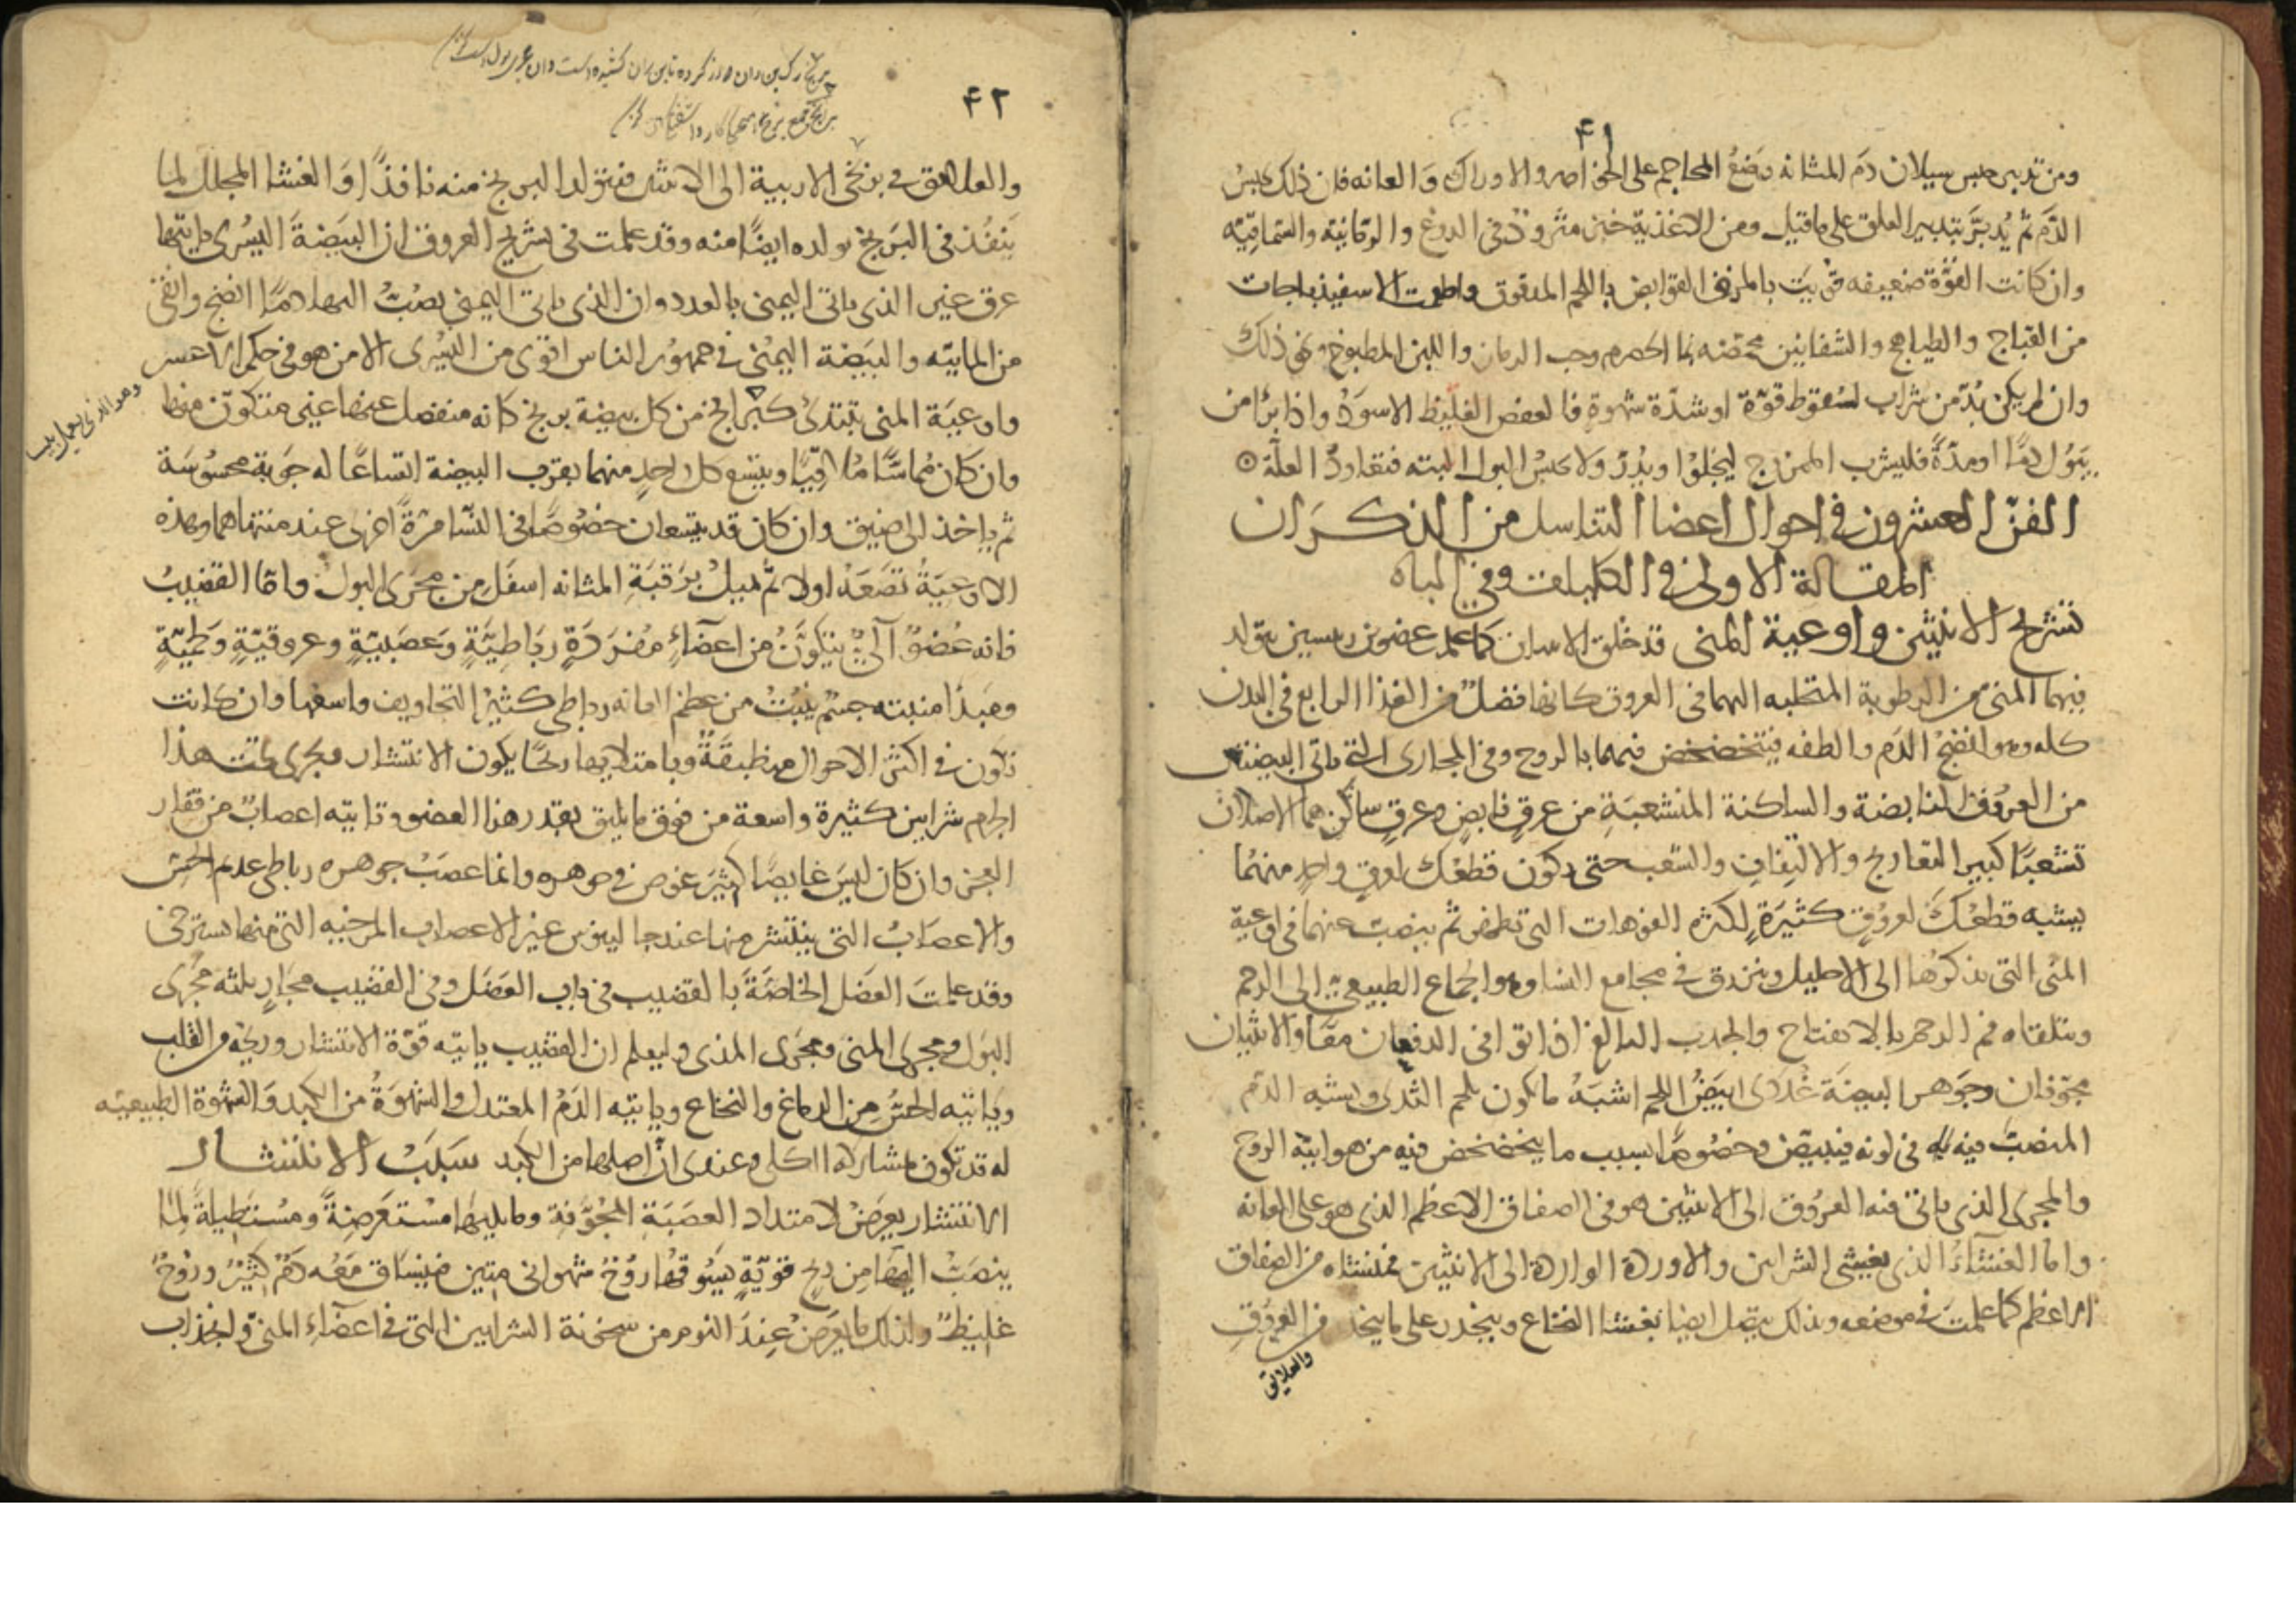 ٤١
ومن تدبير حبس سيلان دم المثانه وضعُ المحاجم على الخواصر والاوراك وَالعانه فان ذلك يحبسُ
الدَّم ثم يُدبَّر بتدبير العلق على ما قيل ومن الاغذية خبز مثرودٌ في الدوغ والرمّانيّة والسّماقيّه
وان كانت القوّة ضعيفه قوّيَت بالمرق القوابض باللحم المدقوق واطعمت الاسفيذباجات
من القباج والطياهج والشفانين محمّضه بماء الحصرم وحب الرمان واللبن المطبوخ ونحو ذلك
وان لم يكن بُدّ من شراب لسُقوط قوّة او شدّة شهوةٍ فالعفص الغليظ الاسوَدُ واذا برأ من
بَوْل دمًا او مِدّةً فليشرب الممزوج ليخلوَا ويُدِرّ وَلا يحبسُ البول البته فتعاودُ العلّة
الفنّ العشرون في احوال اعضاا التناسل من الذكرَان
المقالة الاولى في الكليات وفي الباه
تشريح الانثيين واوعية المني قد خلق الانثيان كما علم عضوين رييسين يتولد
فيهما المني من الرطوبة المتحلبه اليهما في العروق كانها فضلٌ من الغذا الرابع في البدن
كله وهو انضجُ الدّم والطفه فيتخضخض فيهما بالروح وفي المجارى التي تاتي البيضتين
من العرُوق النابضة والساكنة المنشعبَةِ من عرقٍ نابضٍ وعرقٍ ساكنٍ هما الاصلان
تشعبًا كثير التعاريج والالتفاف والشعب حتى يكون قطعُك لعرقٍ واحدٍ منهُما
يشبه قطعُكَ لعروُقٍ كثيرَةٍ لكثره الفوهات التي تظهر ثم ينصبّ عنهما في اوعية
المنى التي نذكرُها الى الاحليل وينزرق في مجامع النساا وهو الجماع الطبيعي الى الرحم
ويتلقاه فم الرحم بالانفتاح والجذب البالغ اذا توافى الدفعان معًا والانثيان
مجوّفان وجَوهر البيضَة غُدَدى ابيَضُ اللحم اشبَهُ ما يكون بلحم الثدى ويشبه الدّم
المنصبّ فيه به في لونه فيبيضّ وخصُوصًا بسبب ما يتخضخض فيه من هوائيّه الروح
والمجرى الذى ياتي فيه العرُوق الى الانثيين هو في الصفاق الاعظم الذى هو على العانه
واما الغشاءُ الذى يغشى الشرايين والاوردة الواردة الى الانثيين فمنشاه من الصفاق
الاعظم كما علمتَ في موضعه وبذلك يتصل ايضًا بغشاا النخاع وينحدر على ما ينحدر من العروُقِ
والعلائق
٤٢
والعلائق في بربخى الاربية الى الانثيين فيتولد البربخ منه نافذًا وَالغشاا المجلل لما
يَنفُذ في البَربخ تولده ايضًا منه وقد علمت في تشريح العروق ان البَيضَةَ اليُسْرى ياتيها
عرق غير الذى ياتى اليمنى بالعدد وان الذى ياتى اليمنى يصُبّ اليها دمًا انضج وانقى
من المايّه والبيَضة اليمُنى في جمهوُر الناس اقوى من اليُسْرى الا من هو في حكم الاعسر
واوعيَة المنى تبتدىُ كبرابخ من كل بيضة بربخ كانه منفصل عنها غير متكوّن منها
وان كان مُماسًّا مُلاقيًا ويتسع كل واحدٍ منهما بقرب البيضة اتساعًا له جَوبة محسُوسَة
ثم ياخذ الى ضيق وان كان قد يتسعان خصُوصًا في النسا مرّةً اخرى عند منتهاهما وهذه
الاوعيَةُ تصَعَدُ اولا ثم تميلُ برَقبَةِ المثانه اسفَلَ من مجَرَى البول واما القضيبُ
فانه عُضوٌ آلىٌّ يتكوَّنُ من اعضَاءٍ مفُرَدَةٍ ربَاطِيَّةٍ وَعصَبيّةٍ وعروقيّةٍ وَلحميّةٍ
ومَبدَا منبته جسْم ينبُتُ من عظم العانه رباطى كثيرُ التجاويف واسعُها وان كانت
تكون في اكثر الاحوال منطبقَةً وبامتلايها ريحًا يكون الانتشار ويجرى تحت هذا
الجرم شرايين كثيرة واسعة من فوق ما يليق بقدر هذا العضو وتاتيه اعصابٌ من فقار
العجز وان كان ليسَ غايصًا كثيرَ غوص في جوهره وانما عصَبُ جوهره رباطى عديم الحسّ
والاعصابُ التي ينتشر منها عند جالينوس غير الاعصاب المرخيه التي منها يسترخى
وقد علمتَ العضَل الخاصّةَ بالقضيب في باب العضَل وفي القضيب مجارٍ ثلثه مجُرى
البَول ومجرى المنىّ ومجرَى المذى وليعلم ان القضيب ياتيه قوّة الانتشار وريحُه من القلب
ويَاتيه الحسُّ من الدماغ والنخاع ويأتيه الدَمُ المعتدل والشهوَةُ من الكبد وَالشهوة الطبيعيّه
له قد تكون بمشاركه الكلى وعندى انّ اصلها من الكبد سَبَبُ الانتشار
الانتشار يعرَضُ لامتداد العصَبَةِ المجُوّفة وما يليها مسْتعَرضِةً ومُسْتطيلةً لما
ينصَبُّ اليهَا مِن ريحٍ قوّيةٍ يسَوُقهُا روُحٌ شهوانى متين فينسَاق مَعَه دمٌ كثيرٌ وروُحٌ
غليظٌ ولذلك ما يعرَضُ عِندَ النوم من سخونة الشرايين التي في اعضَاءِ المنى ولانجذاب